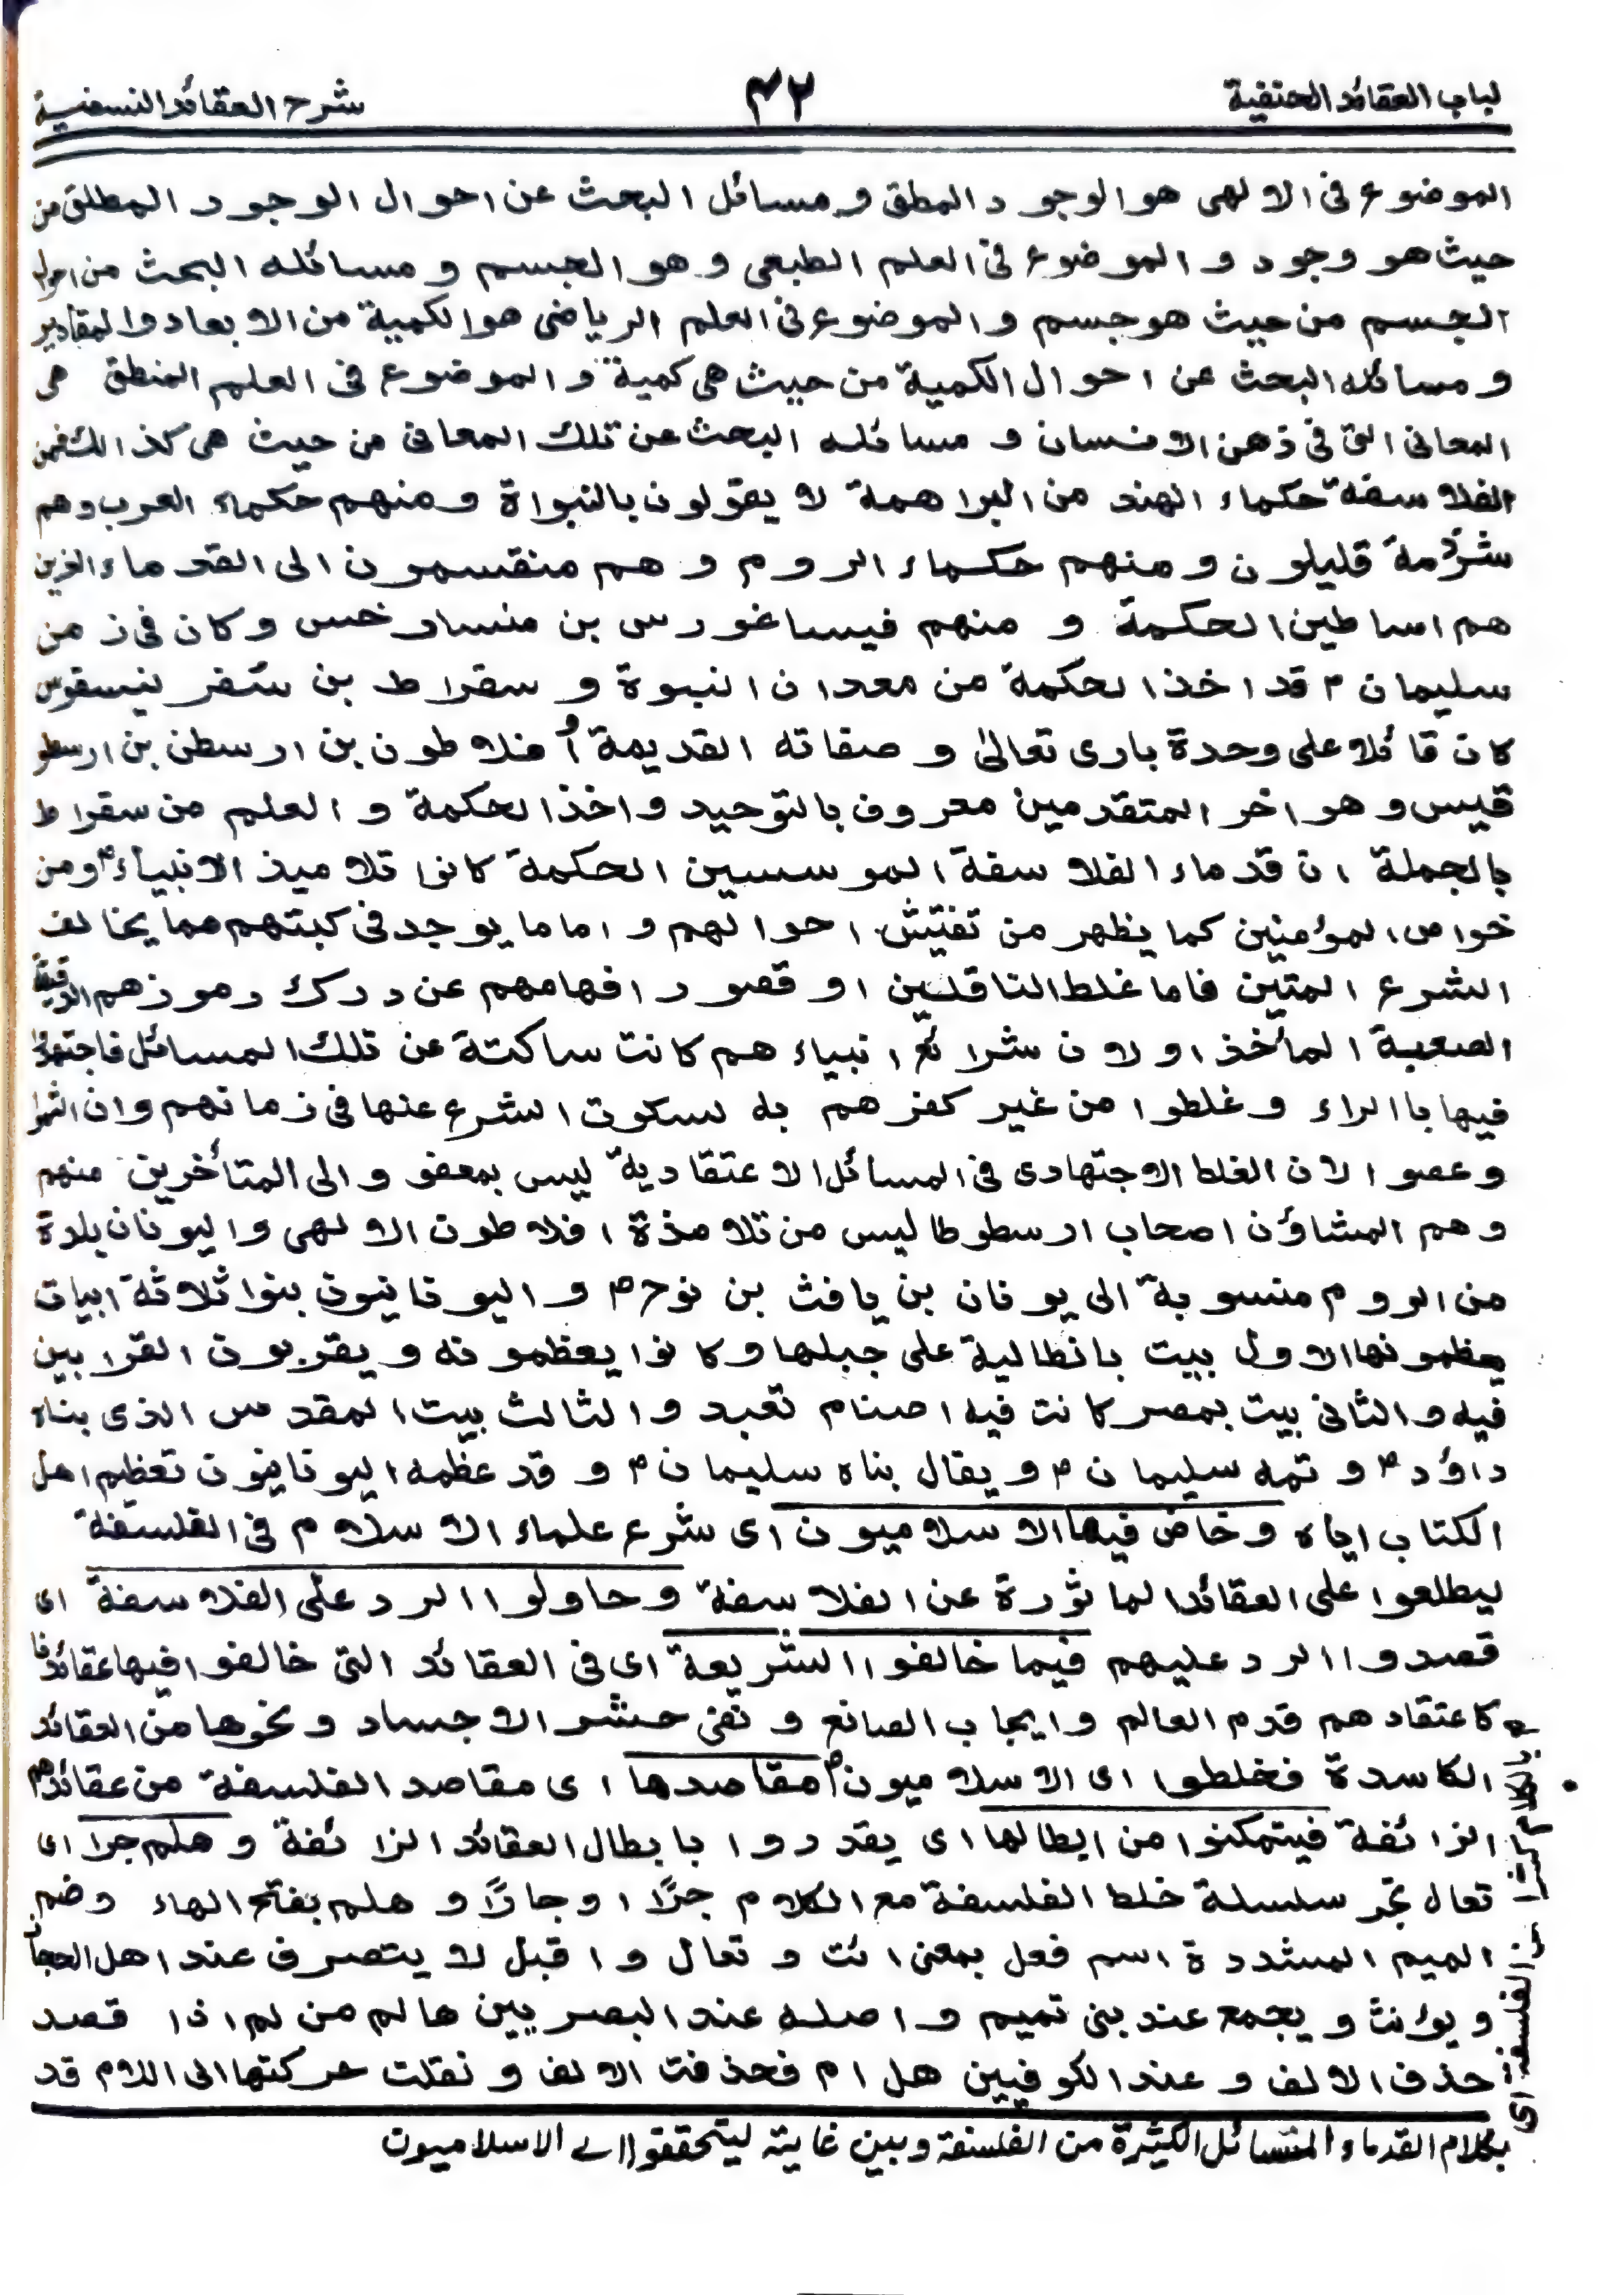 لباب العقائد الحنفية
٤٢
شرح العقائد النسفية
الموضوع فى الالهى هو الوجود المطلق و مسائل البحث عن احوال الوجود المطلق من
حيث هو وجود و الموضوع فى العلم الطبعى و هو الجسم و مسائله البحث من احوال
الجسم من حيث هو جسم و الموضوع فى العلم الرياضى هو الكمية من الابعاد والمقادير
و مسائله البحث عن احوال الكمية من حيث هى كمية و الموضوع فى العلم المنطق هى
المعانى التى فى ذهن الانسان و مسائله البحث عن تلك المعانى من حيث هى كذالك فمن
الفلاسفة حكماء الهند من البراهمة لا يقولون بالنبواة و منهم حكماء العرب وهم
شرذمة قليلون و منهم حكماء الروم و هم منقسمون الى القدماء الذين
هم اساطين الحكمة و منهم فيساغورس بن منسارخس و كان فى زمن
سليمان ؑ قد اخذ الحكمة من معدان النبوة و سقراط بن سقر نيسقوس
كان قائلا على وحدة بارى تعالىٰ و صفاته القديمة أو فلاطون بن ارسطن بن ارسطو
قليس و هو اخر المتقدمين معروف بالتوحيد و اخذ الحكمة و العلم من سقراط
بالجملة ان قدماء الفلاسفة الموسسين الحكمة كانوا تلاميذ الانبياءؑ ومن
خواص المؤمنين كما يظهر من تفتيش احوالهم و اما ما يوجد فى كبتهم مما يخالف
الشرع المتين فاما غلط الناقلين او قصور افهامهم عن درك رموزهم الدقيقة
الصعبة المأخذ او لان شرائع انبياءهم كانت ساكتة عن تلك المسائل فاجتهدوا
فيها باالراء و غلطوا من غير كفرهم به لسكوت الشرع عنها فى زمانهم وان اثموا
و عصوا لان الغلط الاجتهادى فى المسائل الاعتقادية ليس بمعفو و الى المتأخرين منهم
و هم المشاؤن اصحاب ارسطوطاليس من تلامذة افلاطون الالهى و اليونان بلدة
من الروم منسوبة الى يونان بن يافث بن نوحؑ و اليونانيون بنوا ثلاثة ابيات
يعظمونها الاول بيت بانطالية على جبلها و كانوا يعظمونه و يقربون القرابين
فيه و الثانى بيت بمصر كانت فيه اصنام تعبد و الثالث بيت المقدس الذى بناه
داؤدؑ و تمه سليمانؑ و يقال بناه سليمانؑ و قد عظمه اليونانيون تعظيم اهل
الكتاب اياه و خاض فيها الاسلاميون اى شرع علماء الاسلام فى الفلسفة
ليطلعوا على العقائد الماثورة عن الفلاسفة و حاولوا الرد على الفلاسفة اى
قصدوا الرد عليهم فيما خالفوا الشريعة اى فى العقائد التى خالفوا فيها عقائدنا
كاعتقادهم قدم العالم و ايجاب الصانع و نفى حشر الاجساد و نحوها من العقائد
الكاسدة فخلطوا اى الاسلاميون مقاصدها اى مقاصد الفلسفة من عقائدهم
الزائفة فيتمكنوا من ابطالها اى يقدروا بابطال العقائد الزائفة و هلم جرا اى
تعال نجّر سلسلة خلط الفلسفة مع الكلام جرًا او جارًا و هلم بفتح الهاء وضم
الميم المشددة اسم فعل بمعنى ائت و تعال و اقبل لا يتصرف عند اهل الحجاز
و يؤنث و يجمع عند بنى تميم و اصله عند البصريين هالم من لم اذا قصد
حذف الالف و عند الكوفيين هل ام فحذفت الالف و نقلت حركتها الى اللام قد
بالكلام كثيرا من الفلسفة اى
بكلام القدماء المسائل الكثيرة من الفلسفة و بين غايته ليتحققوا اے الاسلاميون